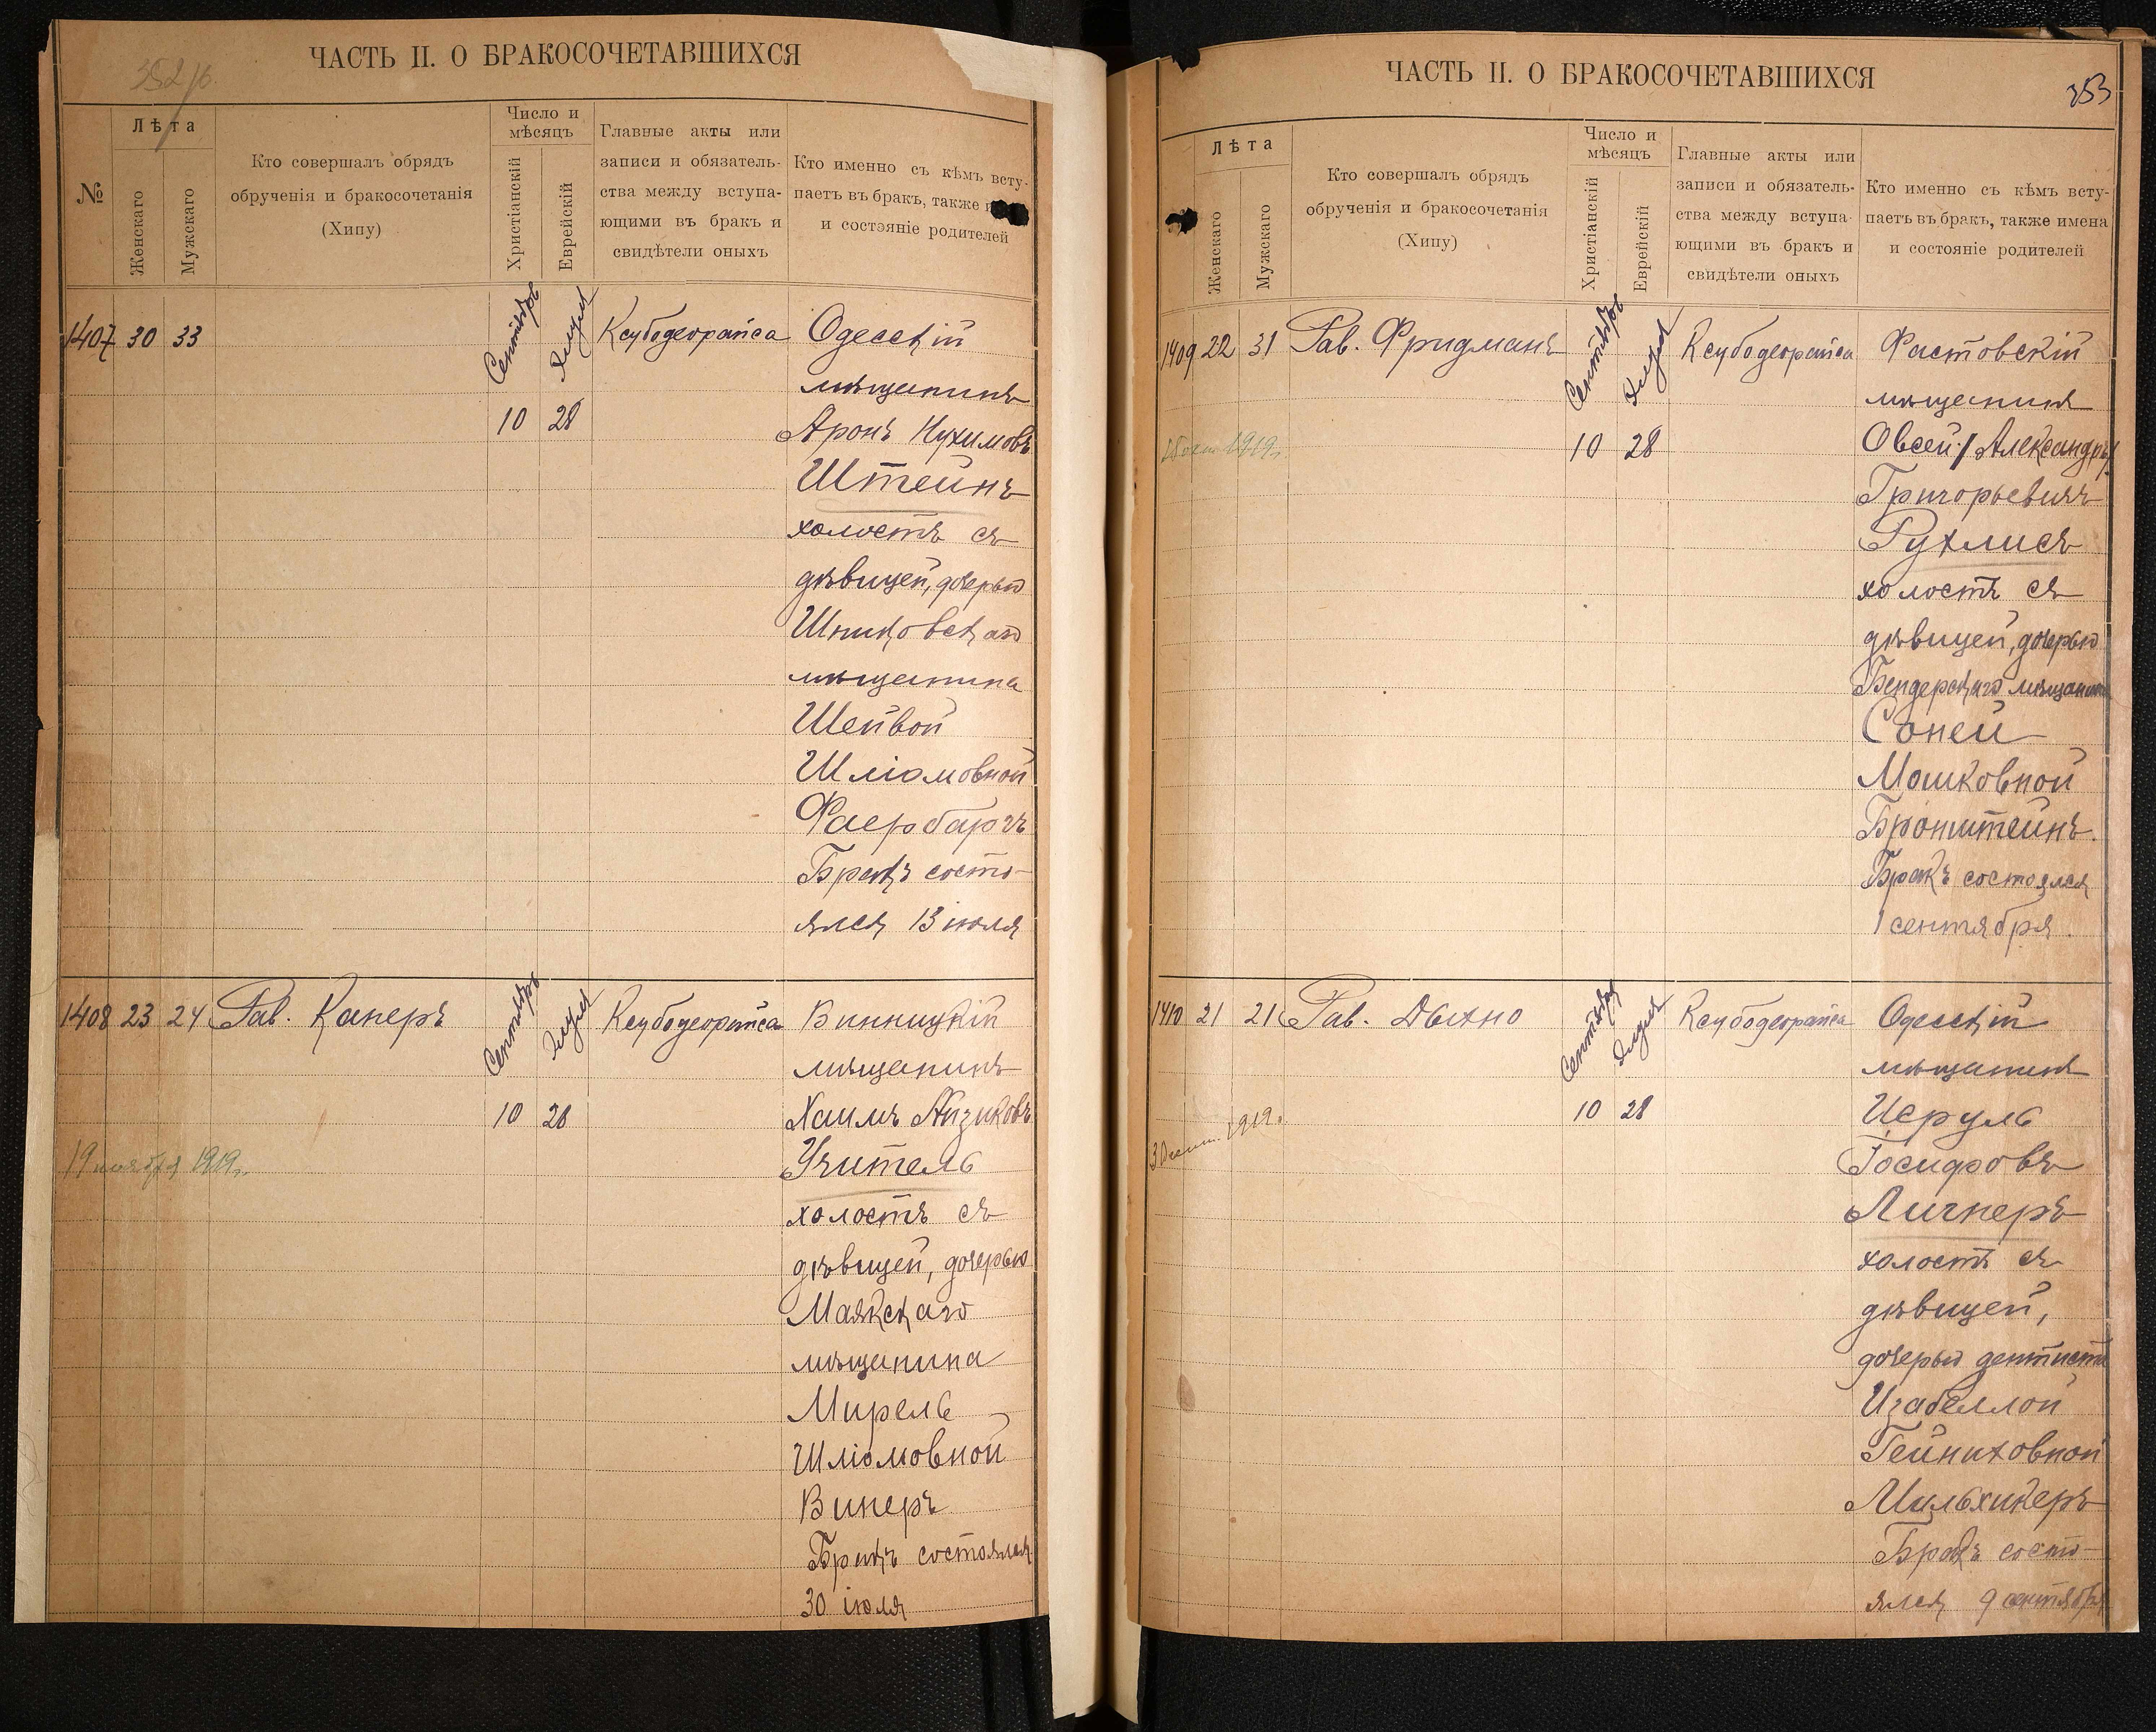 352 об.
ЧАСТЬ II. О БРАКОСОЧЕТАВШИХСЯ
№
Лѣта
Женскаго
Мужскаго
Кто совершалъ обрядъ
обрученія и бракосочетанія
(Хипу)
Число и
мѣсяцъ
Христіанскій
Еврейскій
Главные акты или
записи и обязатель-
ства между вступа-
ющими въ бракъ и
свидѣтели оныхъ
Кто именно съ кѣмъ всту-
паетъ въ бракъ, также
и состэяніе родителей
1407 30 33 Сентября Элуля Ксубодеорайса Одесскій
мѣщанинъ
10 28 Аронъ Нухимовъ
Штейнъ
холостъ съ
дѣвицей, дочерью
Шпиковскаго
мѣщанина
Шейвой
Шліомовной
Фаербаргъ
Бракъ состо-
ялся 13 іюля
1408 23 24 Рав. Канеръ Сентябрь Элуля Ксубодеорайса Винницкій
мѣщанинъ
10 28 Хаимъ Айзиковъ
19 ноября 1919г. Учитель
холостъ съ
дѣвицей, дочерью
Маякскаго
мѣщанина
Мирель
Шліомовной
Винеръ
Бракъ состоялся
30 іюля
ЧАСТЬ II. О БРАКОСОЧЕТАВШИХСЯ
353
Лѣта
Женскаго
Мужскаго
Кто совершалъ обрядъ
обрученія и бракосочетанія
(Хипу)
Число и
мѣсяцъ
Христіанскій
Еврейскій
Главные акты или
записи и обязатель-
ства между вступа-
ющими въ бракъ и
свидѣтели оныхъ
Кто именно съ кѣмъ всту-
паетъ въ бракъ, также имена
и состояніе родителей
1409 22 31 Рав. Фридманъ Сентября Элуля Ксубодеорайса Фастовскій
мѣщанинъ
1919г. 10 28 Овсей /Александръ/
Григорьевичъ
Рухлисъ
холостъ съ
дѣвицей, дочерью
Бендерскаго мѣщанина
Соней
Мошковной
Бронштейнъ.
Бракъ состоялся
1 сентября.
1410 21 21 Рав. Дыхно Сентября Элуля Ксубодеорайса Одесскій
мѣщанинъ
1919г. 10 28 Исруль
Іосифовъ
Личнеръ
холостъ съ
дѣвицей,
дочерью дентиста
Изабеллой
Гейниховной
Мильхикеръ
Бракъ состо-
ялся 9 сентября